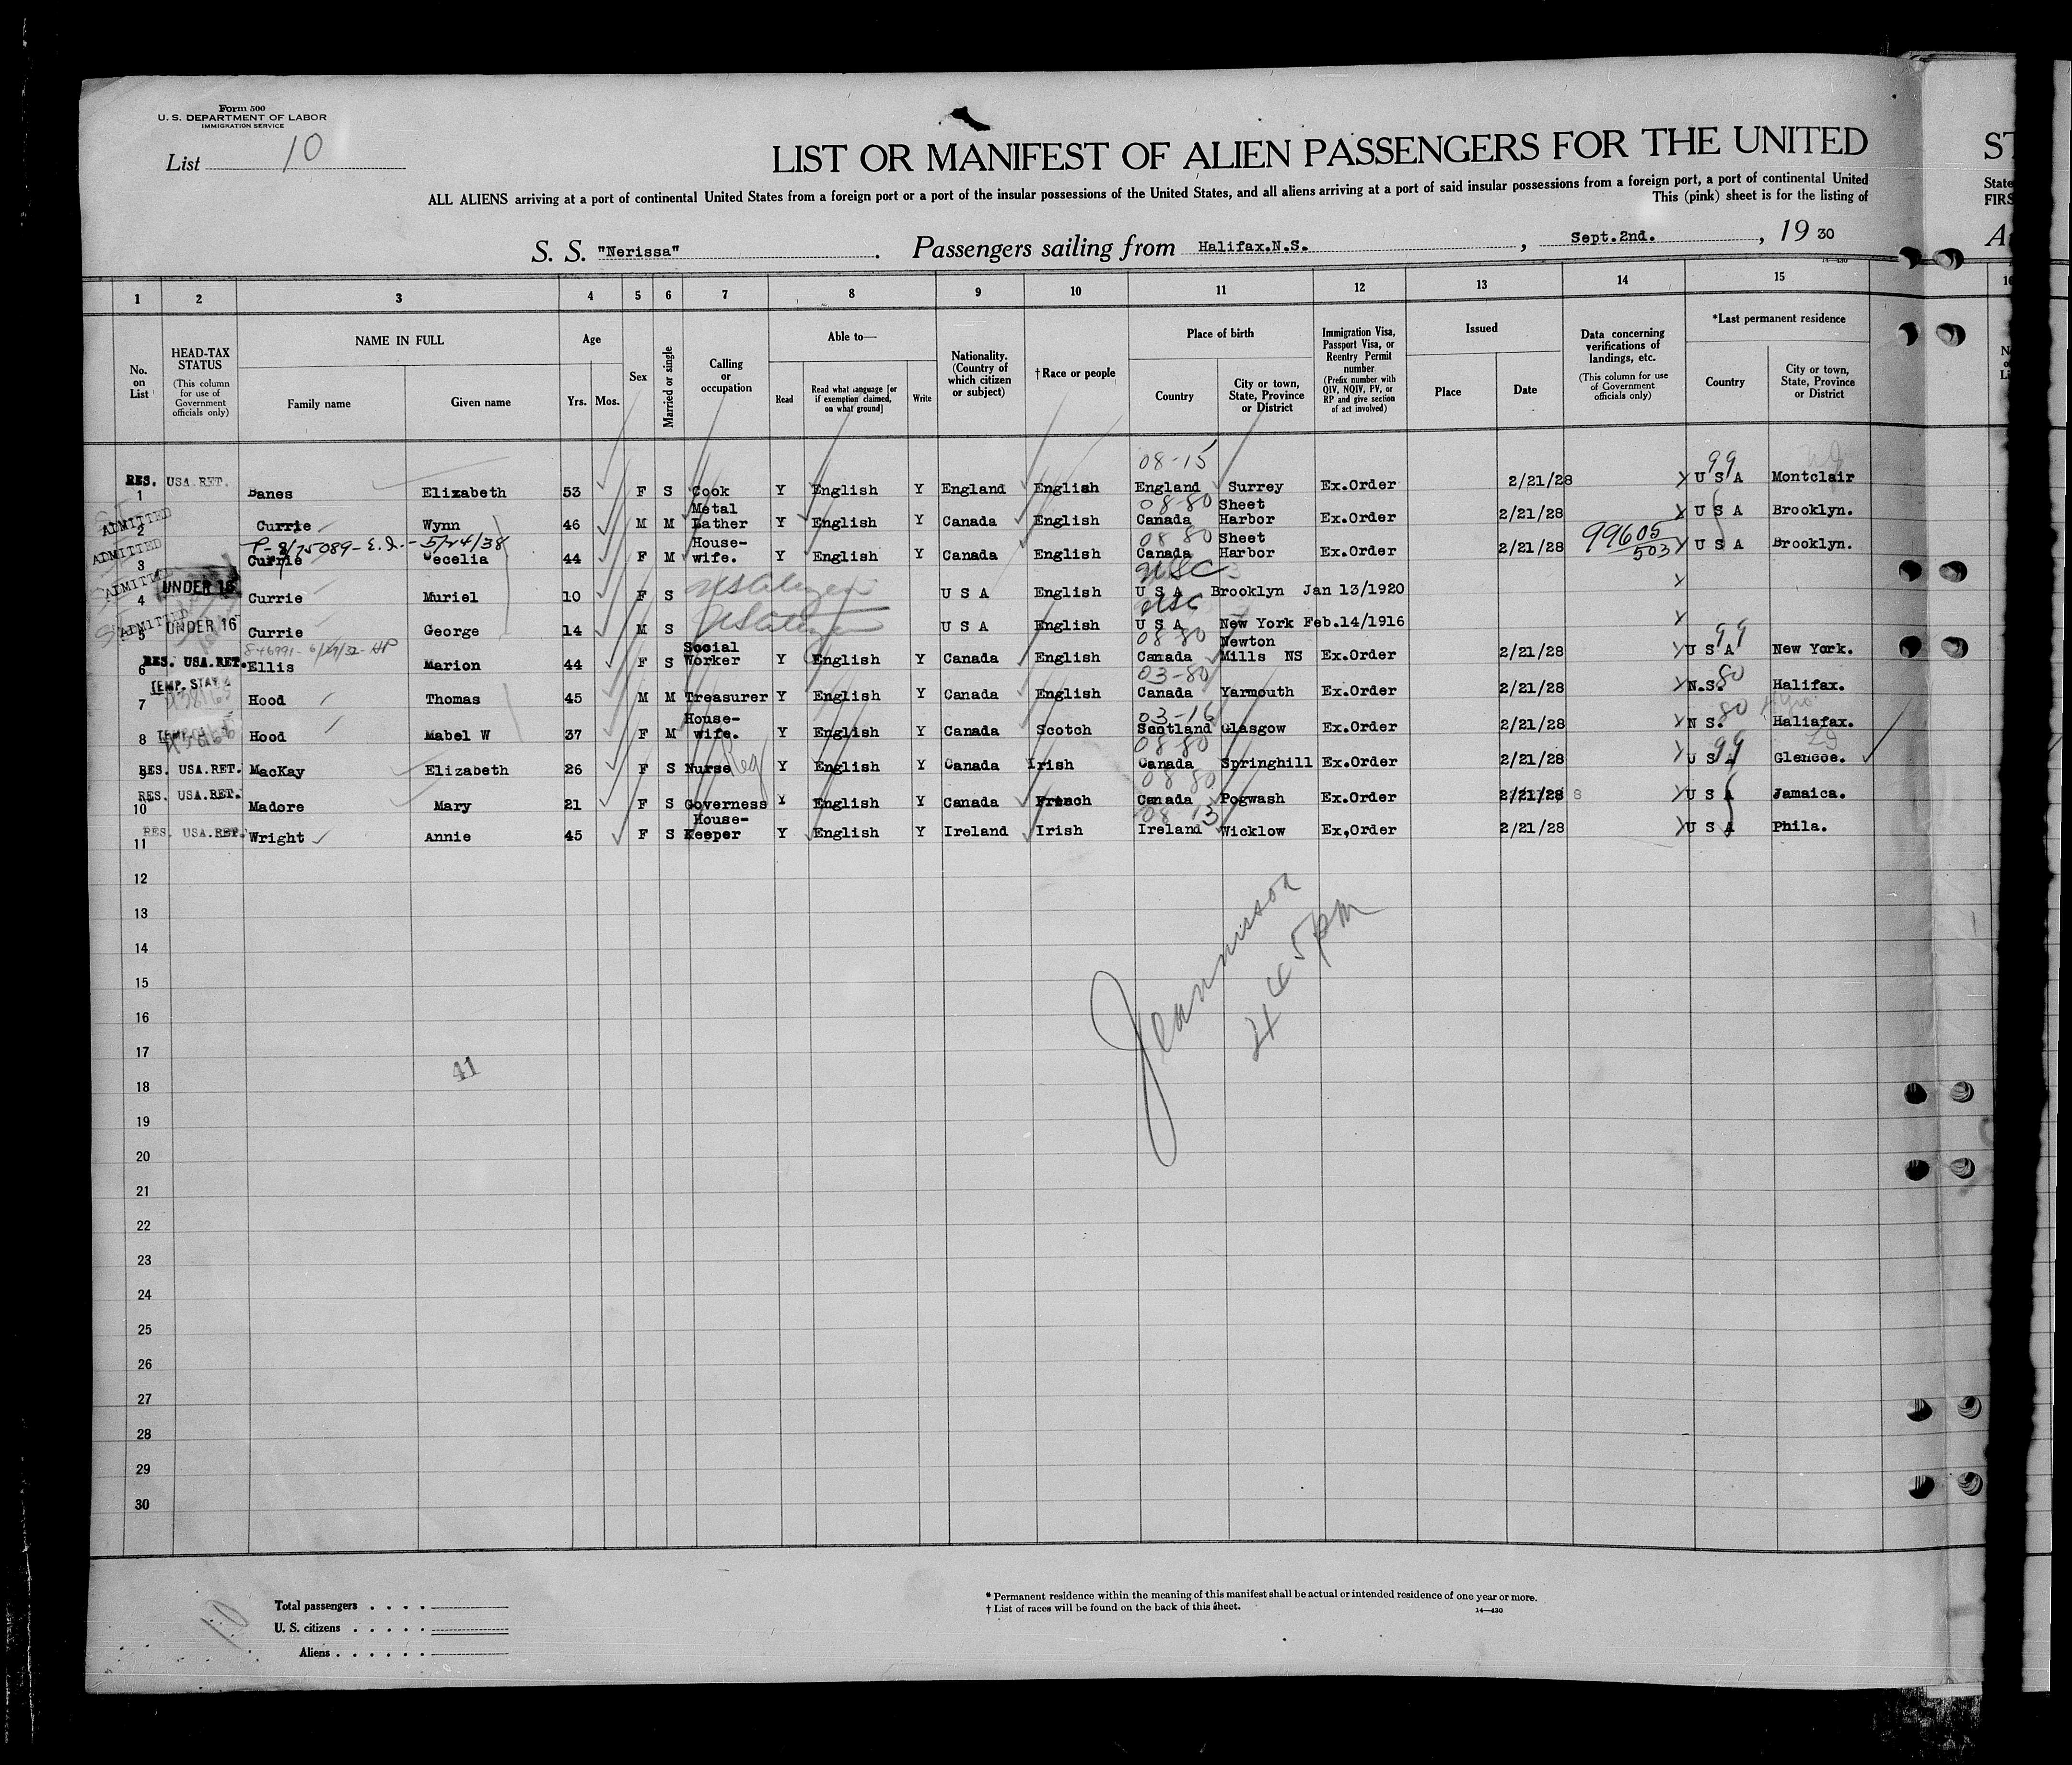 Form 500
U. S. DEPARTMENT OF LABOR
IMMIGRATION SERVICE
List 10
LIST OR MANIFEST OF ALIEN PASSENGERS FOR THE UNITED
ST
ALL ALIENS arriving at a port of continental United States from a foreign port or a port of the insular possessions of the United States, and all aliens arriving at a port of said insular possessions from a foreign port, a port of continental United
State
This (pink) sheet is for the listing of
FIRS
S. S. "Nerissa" . Passengers sailing from Halifax.N.S. , Sept.2nd. , 19 30
1 2 3 4 5 6 7 8 9 10 11 12 13 14 15
No. on List
HEAD-TAX STATUS (This column for use of Government officials only)
NAME IN FULL
Family name Given name
Age
Yrs. Mos.
Sex
Married or single
Calling or occupation
Able to—
Read
Read what language [or if exemption claimed, on what ground]
Write
Nationality. (Country of which citizen or subject)
† Race or people
Place of birth
Country
City or town, State, Province or District
Immigration Visa, Passport Visa, or Reentry Permit number (Prefix number with QIV, NQIV, PV, or RP and give section of act involved)
Issued
Place Date
Data concerning verifications of landings, etc. (This column for use of Government officials only)
*Last permanent residence
Country
City or town, State, Province or District
08-15 99
1 RES. USA.RET. Banes Elizabeth 53 F S Cook Y English Y England English England Surrey Ex.Order 2/21/28 U S A Montclair
ADMITTED 08-80
2 Currie Wynn 46 M M Metal Lather Y English Y Canada English Canada Sheet Harbor Ex.Order 2/21/28 U S A Brooklyn.
ADMITTED 5/24/38 08 80 99605/503
3 Currie Cecelia 44 F M House-wife. Y English Y Canada English Canada Sheet Harbor Ex.Order 2/21/28 U S A Brooklyn.
ADMITTED USC
4 UNDER 16 Currie Muriel 10 F S US Citizen U S A English U S A Brooklyn Jan 13/1920
ADMITTED USC
5 UNDER 16 Currie George 14 M S US Citizen U S A English U S A New York Feb.14/1916
08 80 99
6 RES. USA.RET. Ellis Marion 44 F S Social Worker Y English Y Canada English Canada Newton Mills NS Ex.Order 2/21/28 U S A New York.
TEMP. STAY 03-80 80
7 Hood Thomas 45 M M Treasurer Y English Y Canada English Canada Yarmouth Ex.Order 2/21/28 N.S. Halifax.
03-16 80
8 Hood Mabel W 37 F M House-wife. Y English Y Canada Scotch Scotland Glasgow Ex.Order 2/21/28 N S. Haliafax.
08-80 99
9 RES. USA.RET. MacKay Elizabeth 26 F S Nurse Y English Y Canada Irish Canada Springhill Ex.Order 2/21/28 U S A Glencoe.
08 80
10 RES. USA.RET. Madore Mary 21 F S Governess Y English Y Canada French Canada Pogwash Ex.Order 2/21/28 U S A Jamaica.
08-13
11 RES. USA.RET. Wright Annie 45 F S House-Keeper Y English Y Ireland Irish Ireland Wicklow Ex,Order 2/21/28 U S A Phila.
12
13
14
15
16
17
18
19
20
21
22
23
24
25
26
27
28
29
30
41
445 PM
10
Total passengers . . . .
U. S. citizens . . . . .
Aliens . . . . . .
* Permanent residence within the meaning of this manifest shall be actual or intended residence of one year or more.
† List of races will be found on the back of this sheet.
14—430